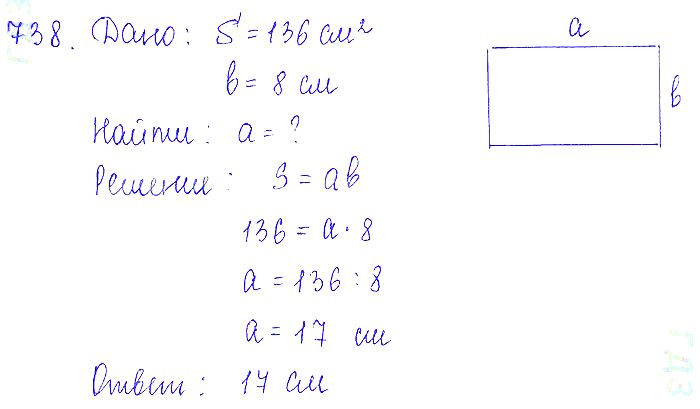 738. Дано: S = 136 см²
a
в = 8 см
в
Найти: a = ?
Решение: S = aв
136 = a · 8
a = 136 : 8
a = 17 см
Ответ: 17 см
ГДЗ